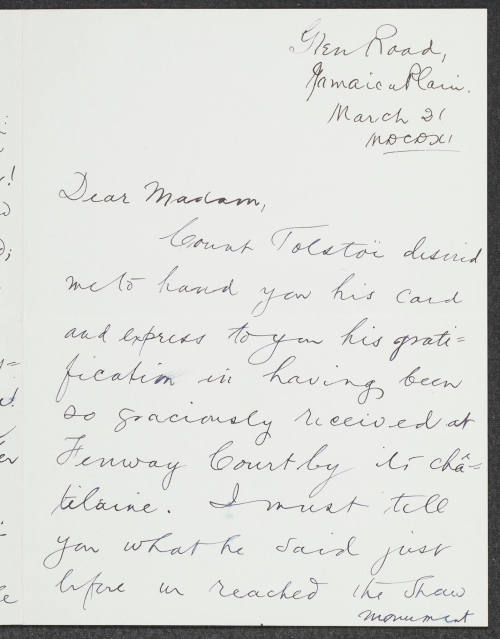 Glen Road,
Jamaica Plain.
March 21
MDCDXI
Dear Madam,
Count Tolstoï desired
me to hand you his card
and express to you his grati=
fication in having been
so graciously received at
Fenway Court by its châ=
telaine. I must tell
you what he said just
before we reached the Shaw
monument